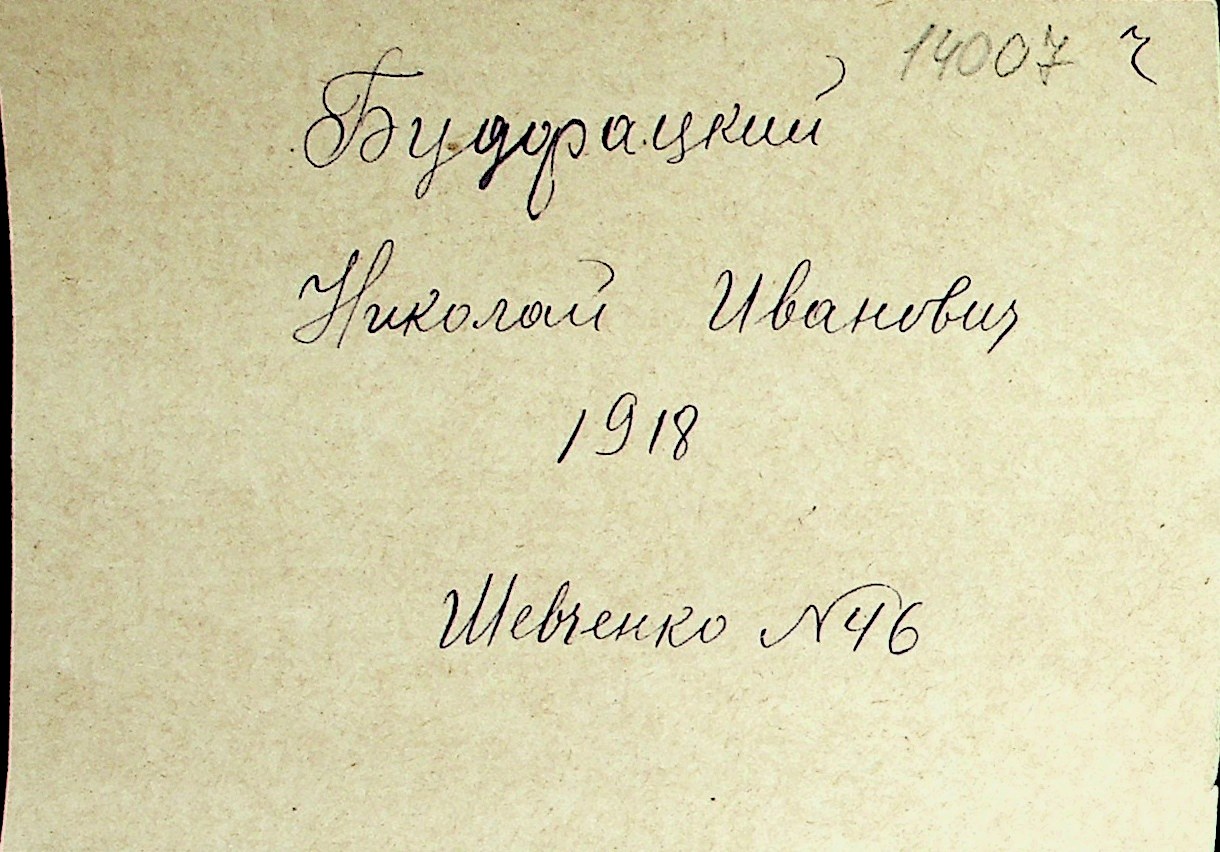 14007 ч
Будорацкий
Николай Иванович
1918
Шевченко №46